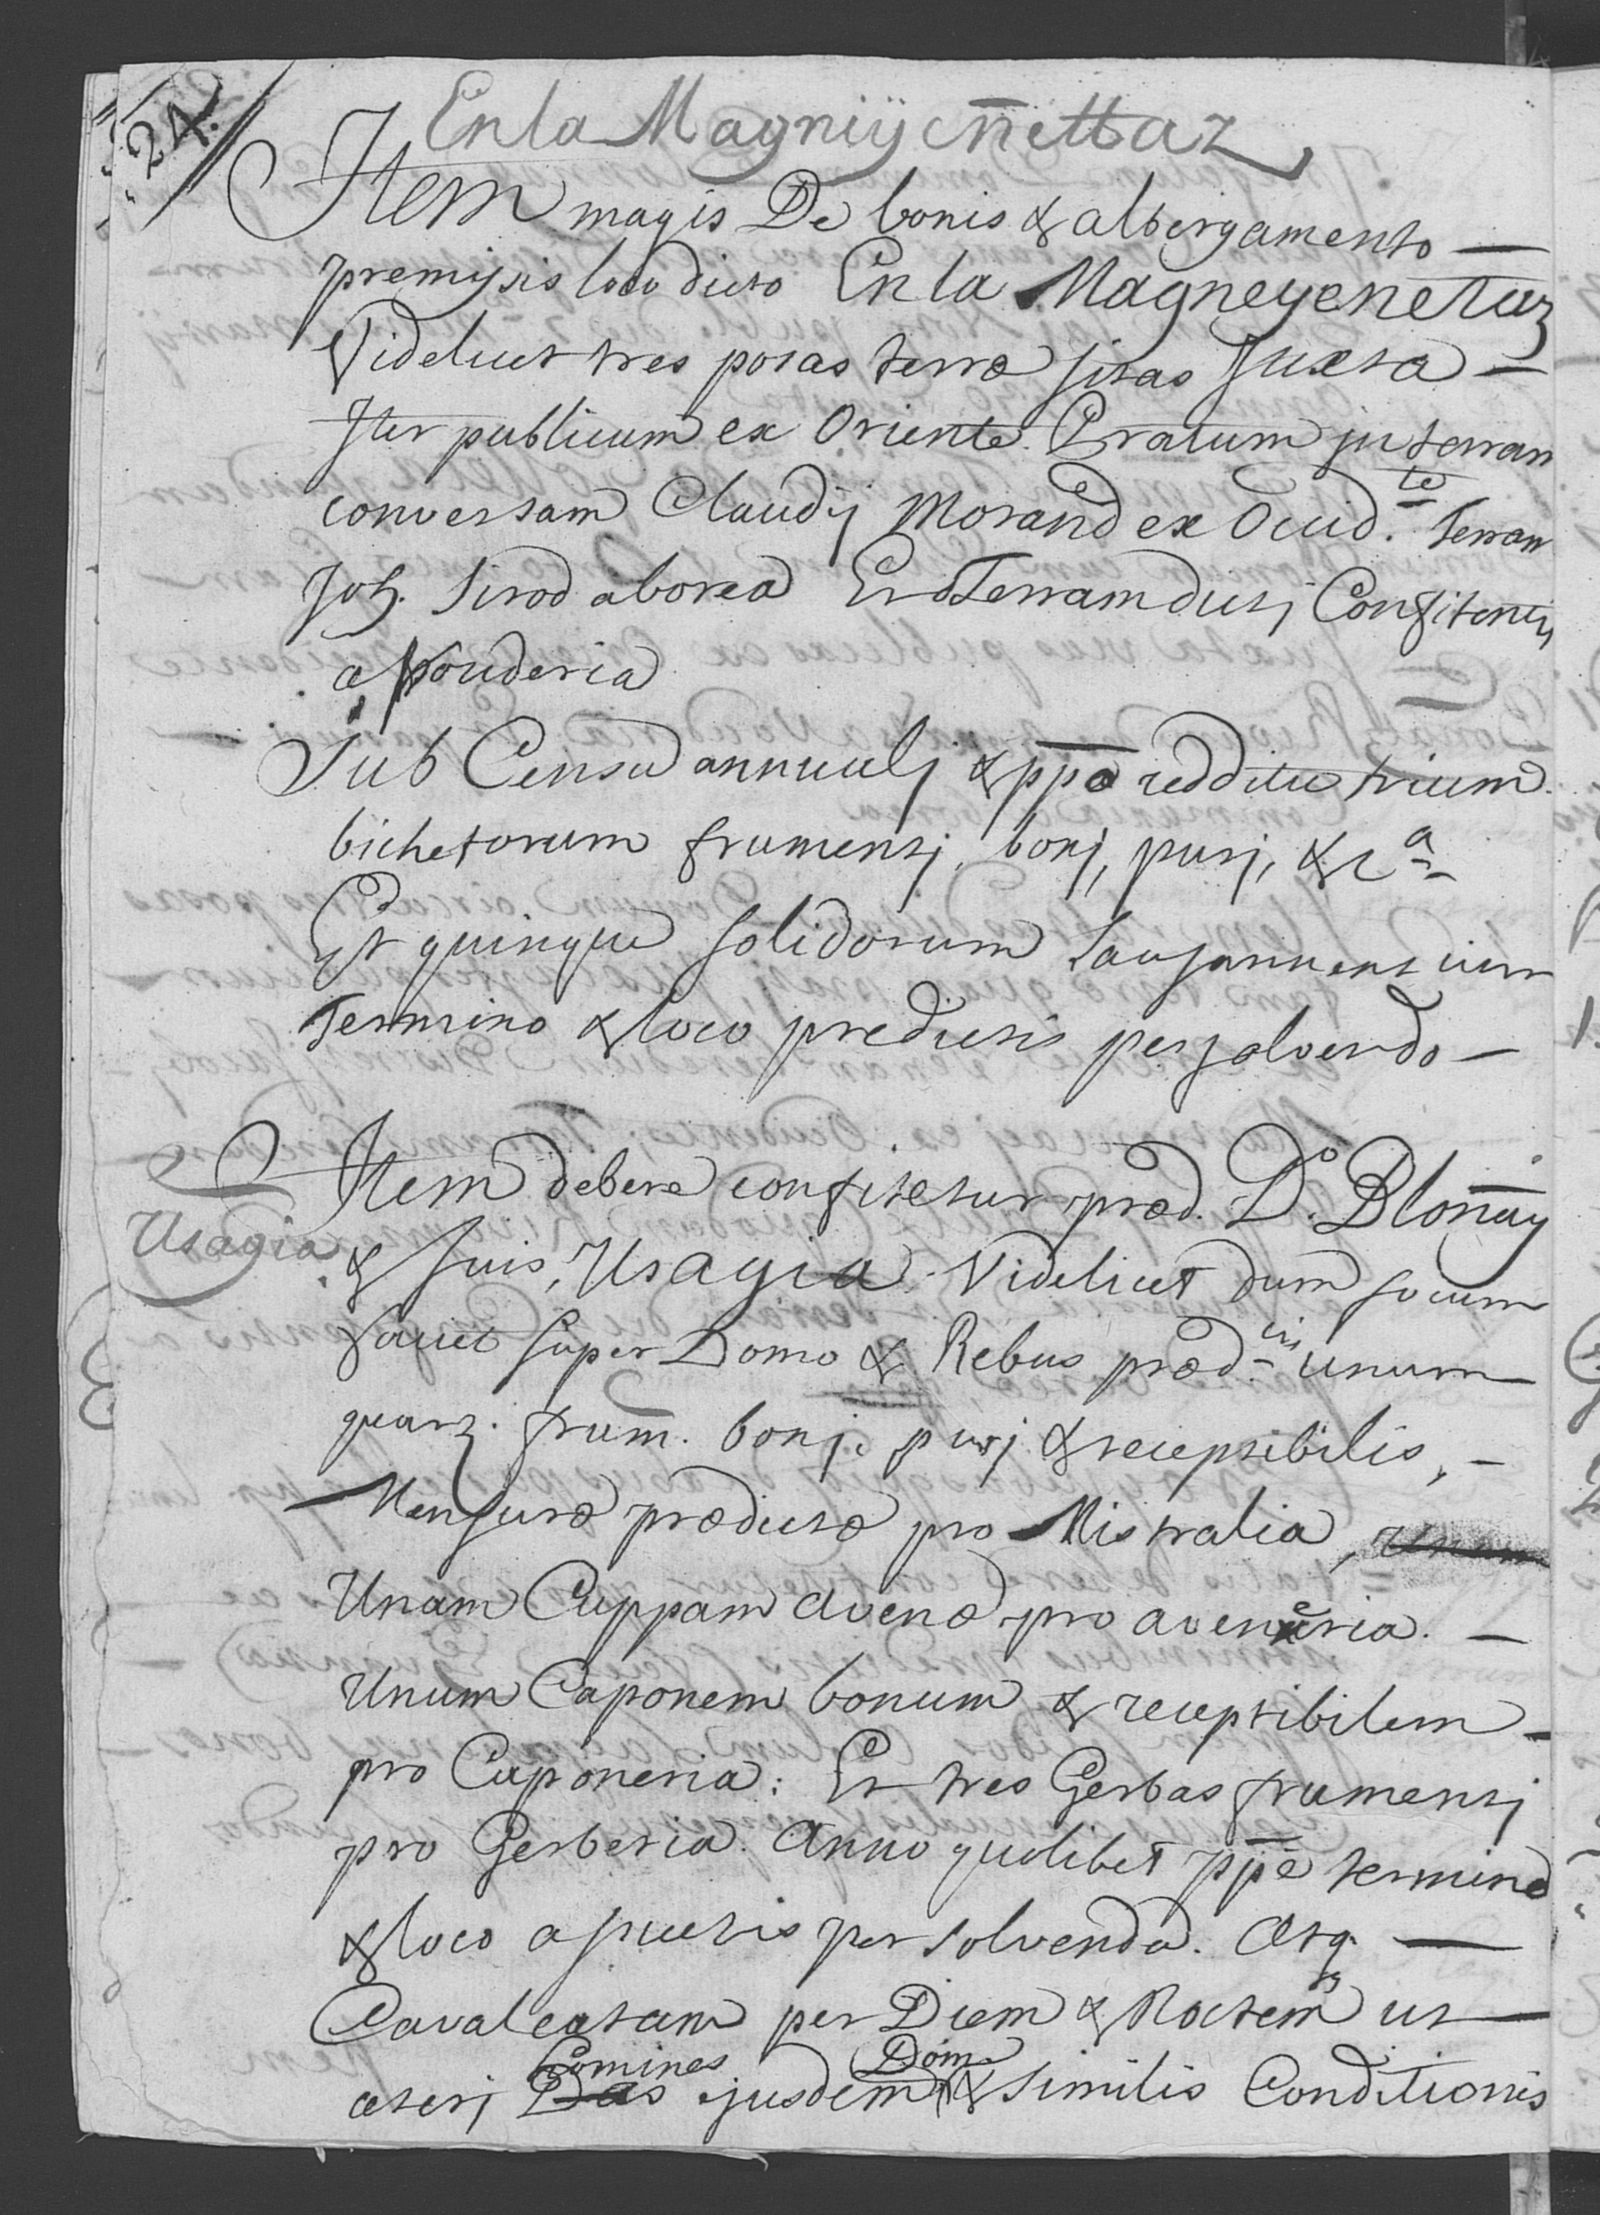 24.
En la Magniÿen̄ettaz
Item magis De bonis & albergamento —
premissis loco dicto En la Magneyenetaz
Videlicet tres posas terræ sitas Juxta —
Iter publicum ex Oriente. Pratum in terram
conversam Claudij Morand ex Occid.te Terram
Joh. Sirod a borea Et Terram dicti Confitentis
a Vouderia
Sub Censu annuali & pp̄o redditu trium
bichetorum frumenti, boni, puri, & ca
Et quinque solidorum Lausannensium
Termino & loco predictis persolvendo —
Item debere confitetur præd. Do. Blon̄ay
Usagia
& suis, Usagia. Videlicet dum focum
faciet super Domo & Rebus præd.cis unum
quart. frum. boni, puri & receptibilis, —
Mensuræ prædictæ pro Mistralia, Unam
Unam Cuppam avenæ pro aveneria. —
Unum Caponem bonum & receptibilem —
pro Caponeria: Et tres Gerbas frumenti
pro Gerberia. Anno quolibet pp̄e termino
& loco apuctis persolvenda. Atq. —
Cavalcatam per Diem & Noctem ut —
Homines Dom.
ceteri Das ejusdem & similis Conditionis